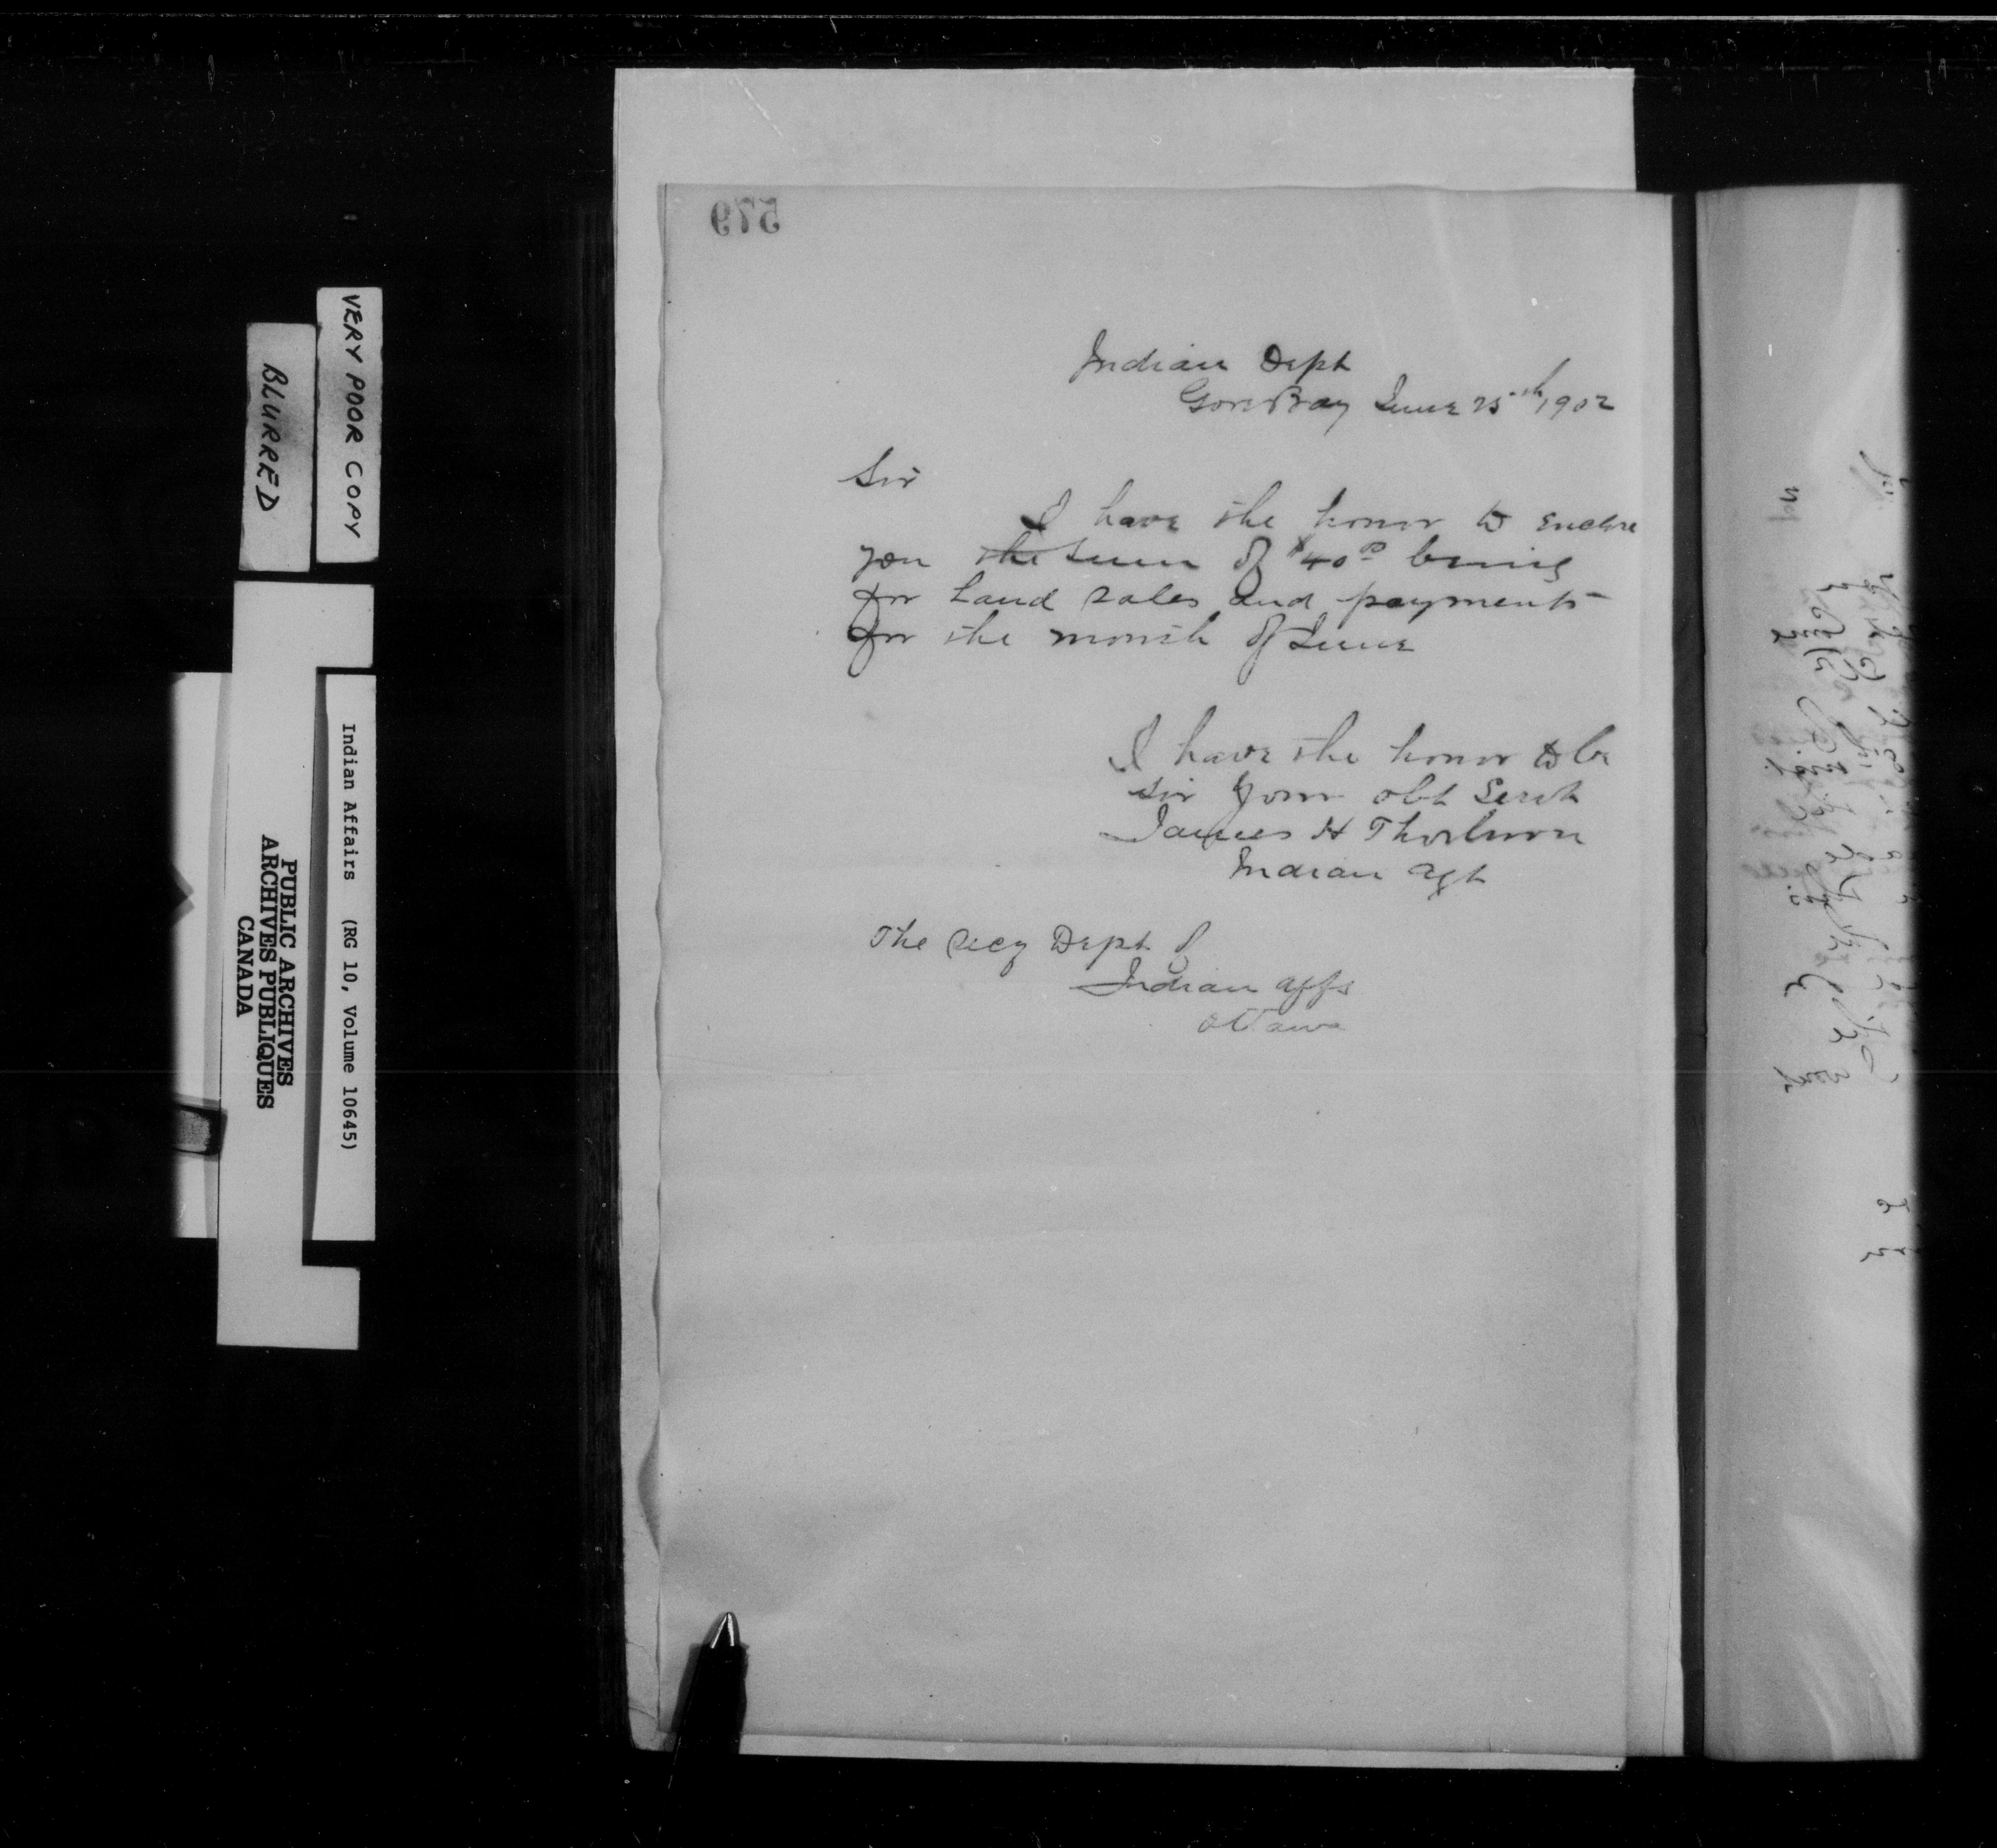 579
Indian Dept
Gore Bay June 25th 1902
Sir
I have the honor to enclose
you the sum of $40.00 being
for Land Sales and payments
for the month of June
I have the honor to be
Sir Your obt Servt
James H Thorburn
Indian Agt
The Secy Dept of
Indian Affs
Ottawa
VERY POOR COPY
BLURRED
Indian Affairs (RG 10, Volume 10645)
PUBLIC ARCHIVES
ARCHIVES PUBLIQUES
CANADA